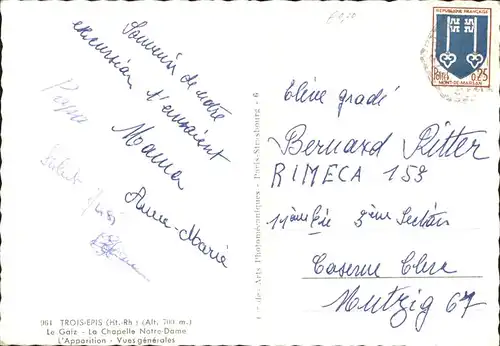 Souvenir de notre
excursion t'envoient
Papa
Mama
Salut
Anne-Marie
961 TROIS-EPIS (Ht.-Rh.) (Alt. 700 m.)
Le Galz - La Chapelle Notre-Dame
L'Apparition - Vues générales
des Arts Photomécaniques - Paris-Strasbourg - 6
REPUBLIQUE FRANÇAISE
Postes 0,25
MONT-DE-MARSAN
élève gradé
Bernard Ritter
RIMECA 153
11ème Cie 3ème Section
Caserne Clerc
Mutzig 67